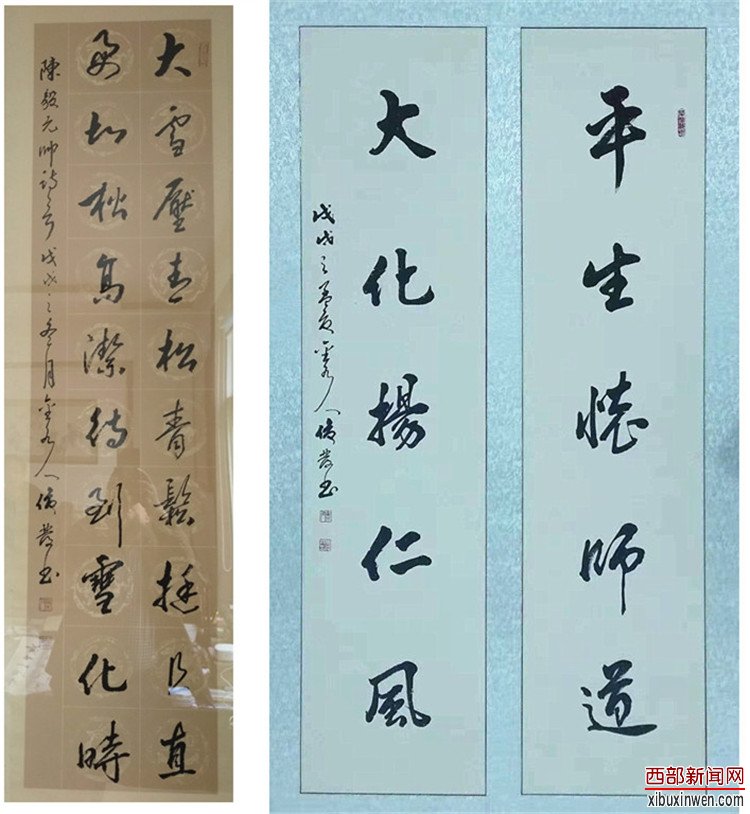 大雪壓青松青鬆挺且直
要知松高潔待到雪化時
陳毅元帥詩 戊戌之冬月 人 书
平生懷師道
大化揚仁風
戊戌之孟夏 人 书
西部新闻网
xibuxinwen.com